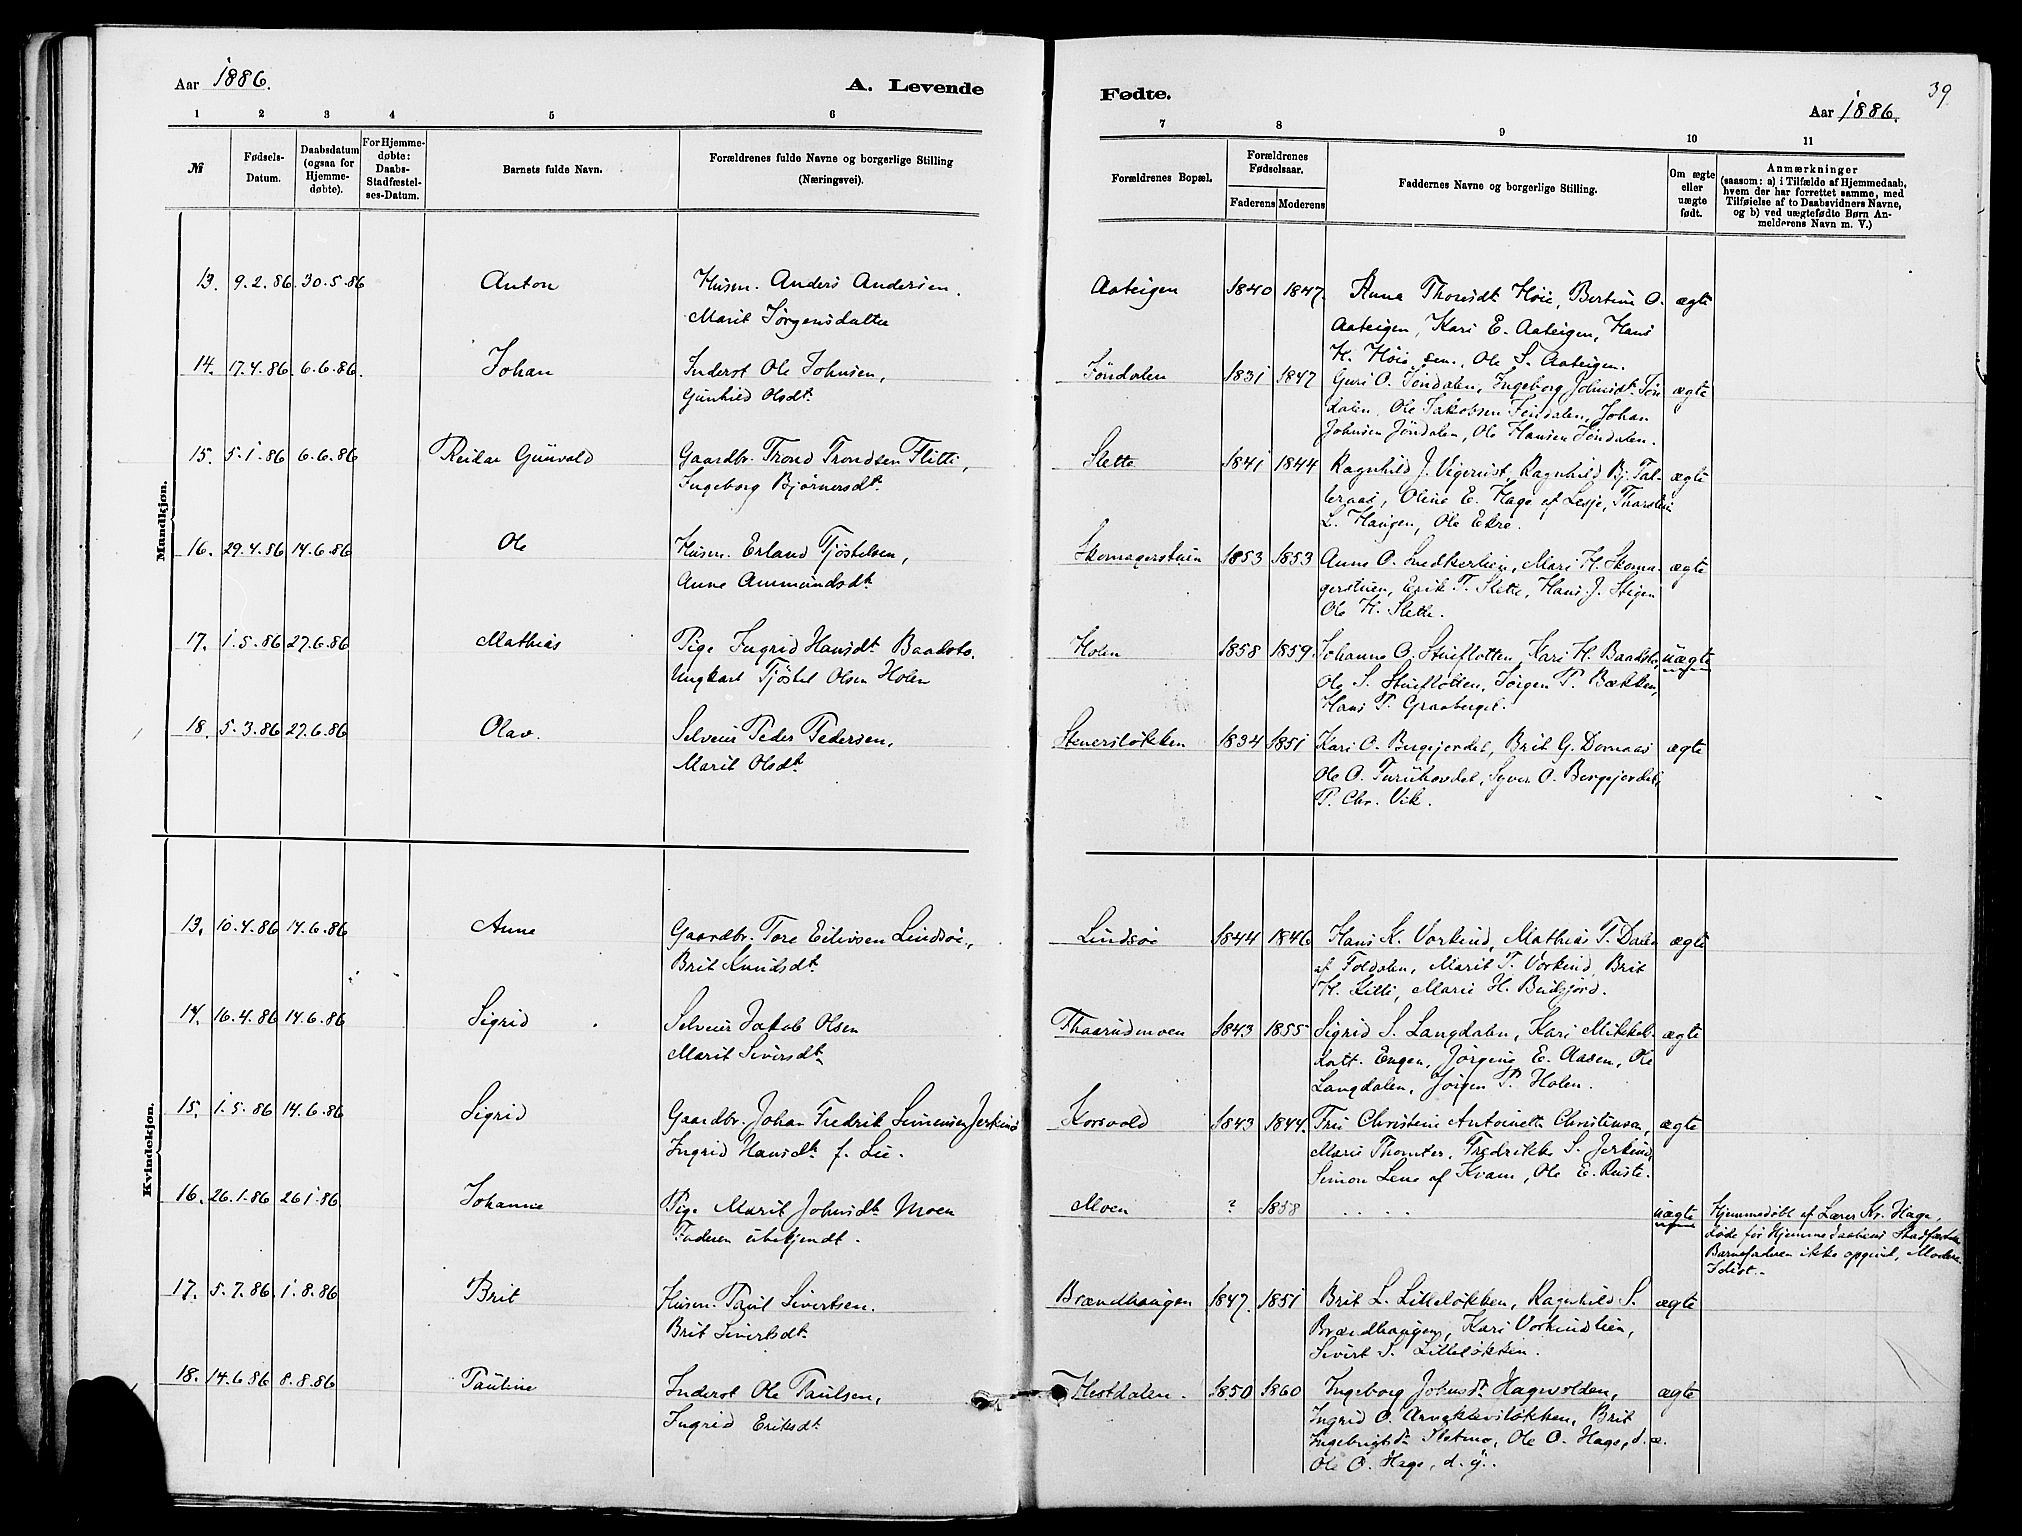 Aar 1886.
A. Levende
1 2 3 4 5 6
№
Fødsels-
Datum.
Daabsdatum
(ogsaa for
Hjemme-
døbte).
For Hjemme-
døbte:
Daabs-
Stadfæstel-
ses-Datum.
Barnets fulde Navn.
Forældrenes fulde Navne og borgerlige Stilling
(Næringsvei).
Mandkjøn.
13. 9.2.86 30.5.86 Anton Husm. Anders Andersen.
Marit Jørgensdatter
14. 17.4.86. 6.6.86. Johan Inderst Ole Johnsen,
Gunhild Olsdt.
15. 5.1.86 6.6.86 Reidar Gunvald Gaardbr. Trond Trondsen Flitti,
Ingeborg Bjørnersdt.
16. 29.4.86 14.6.86 Ole Husm. Erland Tjøstelsen,
Anne Ammundsdt.
17. 1.5.86 27.6.86 Mathias Pige Ingrid Hansdt. Baaksto.
Ungkarl Tjøstel Olsen Holen
18. 5.3.86 27.6.86 Olav. Selveier Peder Pedersen,
Marit Olsdt.
Kvindekjøn.
13. 10.4.86 14.6.86 Anne Gaardbr. Tore Eilivsen Lindsøe,
Brit Knudsdt.
14. 16.4.86 14.6.86 Sigrid Selveier Jakob Olsen
Marit Siversdt.
15. 1.5.86 14.6.86 Sigrid Gaardbr. Johan Fredrik Simensen Jerkind
Ingrid Hansdt. f. Lie.
16. 26.1.86 26.1.86 Johanne Pige Marit Johnsdt. Moen
Faderen ubekjendt.
17. 5.7.86 1.8.86 Brit Husm. Paul Sivertsen.
Brit Sivertsdt.
18. 14.6.86 8.8.86 Pauline Inderst Ole Paulsen,
Ingrid Eriksdt.
Fødte.
39
Aar 1886.
7 8 9 10 11
Forældrenes Bopæl.
Forældrenes
Fødselsaar.
Faderens Moderens
Faddernes Navne og borgerlige Stilling.
Om ægte
eller
uægte
født.
Anmærkninger
(saasom: a) i Tilfælde af Hjemmedaab,
hvem der har forrettet samme, med
Tilføielse af to Daabsvidners Navne,
og b) ved uægtefødte Børn An-
melderens Navn m. V.)
Aateigen 1840 1847. Anna Thorsdt Høie, Bertine O. ægte
Aateigen, Kari E. Aateigen, Hans
H. Høie sen. Ole S. Aateigen.
Jøndalen 1831 1847 Guri O. Jøndalen, Ingeborg Johnsdt. Jøn ægte
dalen, Ole Jakobsen Jøndalen, Johan
Johnsen Jøndalen, Ole Hansen Jøndalen.
Slette 1841 1844 Ragnhild J. Vigerust, Ragnhild Bj. Tal- ægte
leraas, Oline E. Hage af Lesje, Thorstein
L. Haugen, Ole Ekre.
Skomagerstuen 1853 1853 Anne O. Snedkerlien, Mari H. Skoma- ægte
gerstuen, Erik T. Slette, Hans J. Stigen
Ole H. Slette.
Holen 1858 1859. Johanne O. Stueflotten, Kari H. Baaksto, uægte
Ole S. Stueflotten, Jørgen P. Bækken,
Hans T. Graaberget.
Stenersløkken 1834 1851 Kari O. Bergejordet, Brit G. Domaas ægte
Ole O. Turuhovdet, Syver O. Bergejordet,
P. Chr. Vik.
Lindsøe 1844 1846 Hans K. Vorkind, Mathias T. Dalen ægte
af Foldalen, Marit T. Vorkind, Brit
H. Kitti, Marie H. Budsjord.
Thaarudmoen 1843 1855 Sigrid S. Langdalen, Kari Mikkels- ægte
datt. Engen, Jørgine E. Aasen, Ole
Langdalen, Jørgen P. Holen.
Korsvold 1843 1844. Fru Christine Antoinette Christensen, ægte
Marie Thomter, Fredrikke S. Jerkind,
Simon Lene af Kvam, Ole E. Ruste.
Moen ? 1858 . . . . . uægte Hjemmedøbt af Lærer Kr. Hage,
døde før Hjemmedaabens Stadfæstelse
Barnefaderen ikke opgivet, Moderen
Idiot.
Brændhaugen 1847. 1851 Brit L. Lilleløkken, Ragnhild S. ægte
Brændhaugen, Kari Vorkindlien,
Sivert S. Lilleløkken.
Hestdalen. 1850 1860 Ingeborg Johnsdt. Hagevolden, ægte
Ingrid O. Arneklevsløkken, Brit
Ingebrigtsdt. Sletmo, Ole O. Hage, d. æ.
Ole O. Hage, d. y.